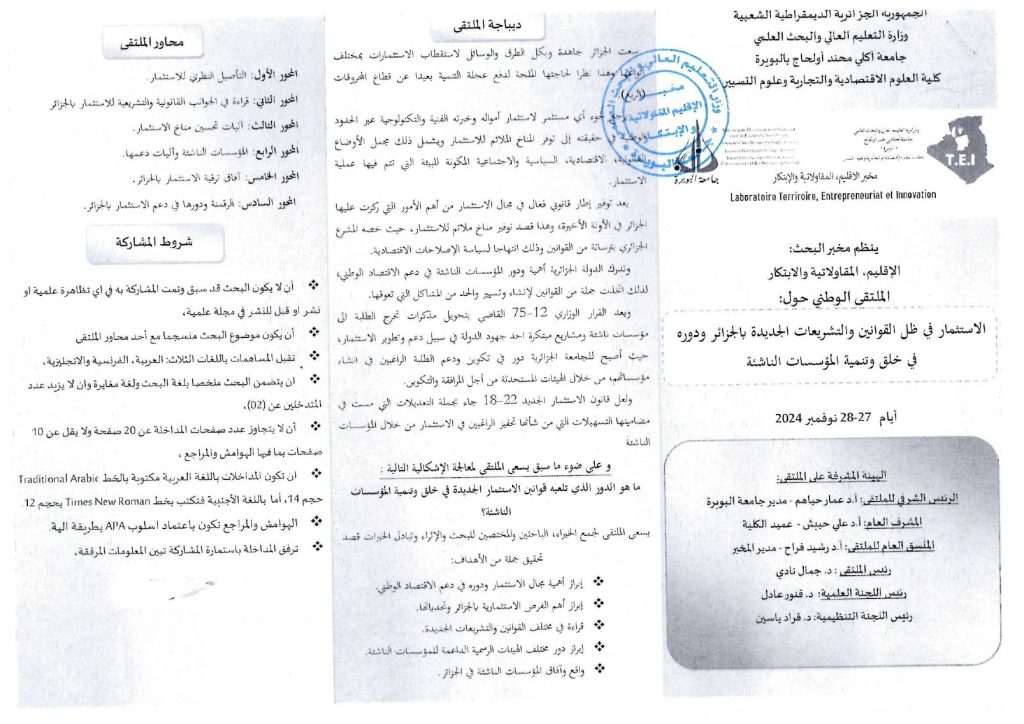 الجمهورية الجزائرية الديمقراطية الشعبية
وزارة التعليم العالي والبحث العلمي
جامعة أكلي محند أولحاج بالبويرة
كلية العلوم الاقتصادية والتجارية وعلوم التسيير
جامعة البويرة
T.E.I
مخبر الاقليم، المقاولاتية والإبتكار
Laboratoire Terriroire, Entrepreneuriat et Innovation
ينظم مخبر البحث:
الإقليم، المقاولاتية والابتكار
الملتقى الوطني حول:
الاستثمار في ظل القوانين والتشريعات الجديدة بالجزائر ودوره
في خلق وتنمية المؤسسات الناشئة
أيام 27-28 نوفمبر 2024
الهيئة المشرفة على الملتقى:
الرئيس الشرفي للملتقى: أ.د عمار حياهم - مدير جامعة البويرة
المشرف العام: أ.د علي حبيش - عميد الكلية
المنسق العام للملتقى: أ.د رشيد فراح - مدير المخبر
رئيس الملتقى : د. جمال نادي
رئيس اللجنة العلمية: د. قنور عادل
رئيس اللجنة التنظيمية: د. قراد ياسين
ديباجة الملتقى
سعت الجزائر جاهدة وبكل الطرق والوسائل لاستقطاب الاستثمارات بمختلف
وهذا نظرا لحاجتها الملحة لدفع عجلة التنمية بعيدا عن قطاع المحروقات
(الريع).
لجوء أي مستثمر لاستثمار أمواله وخبرته الفنية والتكنولوجية عبر الحدود
حقيقته إلى توفر المناخ الملائم للاستثمار ويشمل ذلك مجمل الأوضاع
الاقتصادية، السياسية والاجتماعية المكونة للبيئة التي تتم فيها عملية
الاستثمار.
يعد توفير إطار قانوني فعال في مجال الاستثمار من أهم الأمور التي ركزت عليها
الجزائر في الآونة الأخيرة، وهذا قصد توفير مناخ ملائم للاستثمار، حيث خصه المشرع
الجزائري بترسانة من القوانين وذلك انتهاجا لسياسة الإصلاحات الاقتصادية.
وتدرك الدولة الجزائرية أهمية ودور المؤسسات الناشئة في دعم الاقتصاد الوطني،
لذلك اتخذت جملة من القوانين لإنشاء وتسيير والحد من المشاكل التي تعوقها.
ويعد القرار الوزاري 12-75 القاضي بتحويل مذكرات تخرج الطلبة الى
مؤسسات ناشئة ومشاريع مبتكرة احد جهود الدولة في سبيل دعم وتطوير الاستثمار،
حيث أصبح للجامعة الجزائرية دور في تكوين ودعم الطلبة الراغبين في انشاء
مؤسساتهم، من خلال الهيئات المستحدثة من أجل المرافقة والتكوين.
ولعل قانون الاستثمار الجديد 22-18 جاء بجملة التعديلات التي مست في
مضامينها التسهيلات التي من شأنها تحفيز الراغبين في الاستثمار من خلال المؤسسات
الناشئة
و على ضوء ما سبق يسعى الملتقى لمعالجة الإشكالية التالية :
ما هو الدور الذي تلعبه قوانين الاستثمار الجديدة في خلق وتنمية المؤسسات
الناشئة؟
يسعى الملتقى لجمع الخبراء، الباحثين والمختصين للبحث والإثراء وتبادل الخبرات قصد
تحقيق جملة من الأهداف:
❖ إبراز أهمية مجال الاستثمار ودوره في دعم الاقتصاد الوطني.
❖ إبراز أهم الفرص الاستثمارية بالجزائر وتحدياتها.
❖ قراءة في مختلف القوانين والتشريعات الجديدة.
❖ إبراز دور مختلف الهيئات الرسمية الداعمة للمؤسسات الناشئة.
❖ واقع وآفاق المؤسسات الناشئة في الجزائر.
محاور الملتقى
المحور الأول: التأصيل النظري للاستثمار.
المحور الثاني: قراءة في الجوانب القانونية والتشريعية للاستثمار بالجزائر
المحور الثالث: آليات تحسين مناخ الاستثمار.
المحور الرابع: المؤسسات الناشئة وآليات دعمها.
المحور الخامس: آفاق ترقية الاستثمار بالجزائر.
المحور السادس: الرقمنة ودورها في دعم الاستثمار بالجزائر.
شروط المشاركة
❖ أن لا يكون البحث قد سبق وتمت المشاركة به في اي تظاهرة علمية او
نشر او قبل للنشر في مجلة علمية،
❖ أن يكون موضوع البحث منسجما مع أحد محاور الملتقى
❖ تقبل المساهمات باللغات الثلاث: العربية، الفرنسية والانجليزية،
❖ ان يتضمن البحث ملخصا بلغة البحث ولغة مغايرة وان لا يزيد عدد
المتدخلين عن (02)،
❖ أن لا يتجاوز عدد صفحات المداخلة عن 20 صفحة ولا يقل عن 10
صفحات بما فيها الهوامش والمراجع ،
❖ ان تكون المداخلات باللغة العربية مكتوبة بالخط Traditional Arabic
حجم 14، أما باللغة الأجنبية فتكتب بخط Times New Roman بحجم 12
❖ الهوامش والمراجع تكون باعتماد اسلوب APA بطريقة الية.
❖ ترفق المداخلة باستمارة المشاركة تبين المعلومات المرفقة.